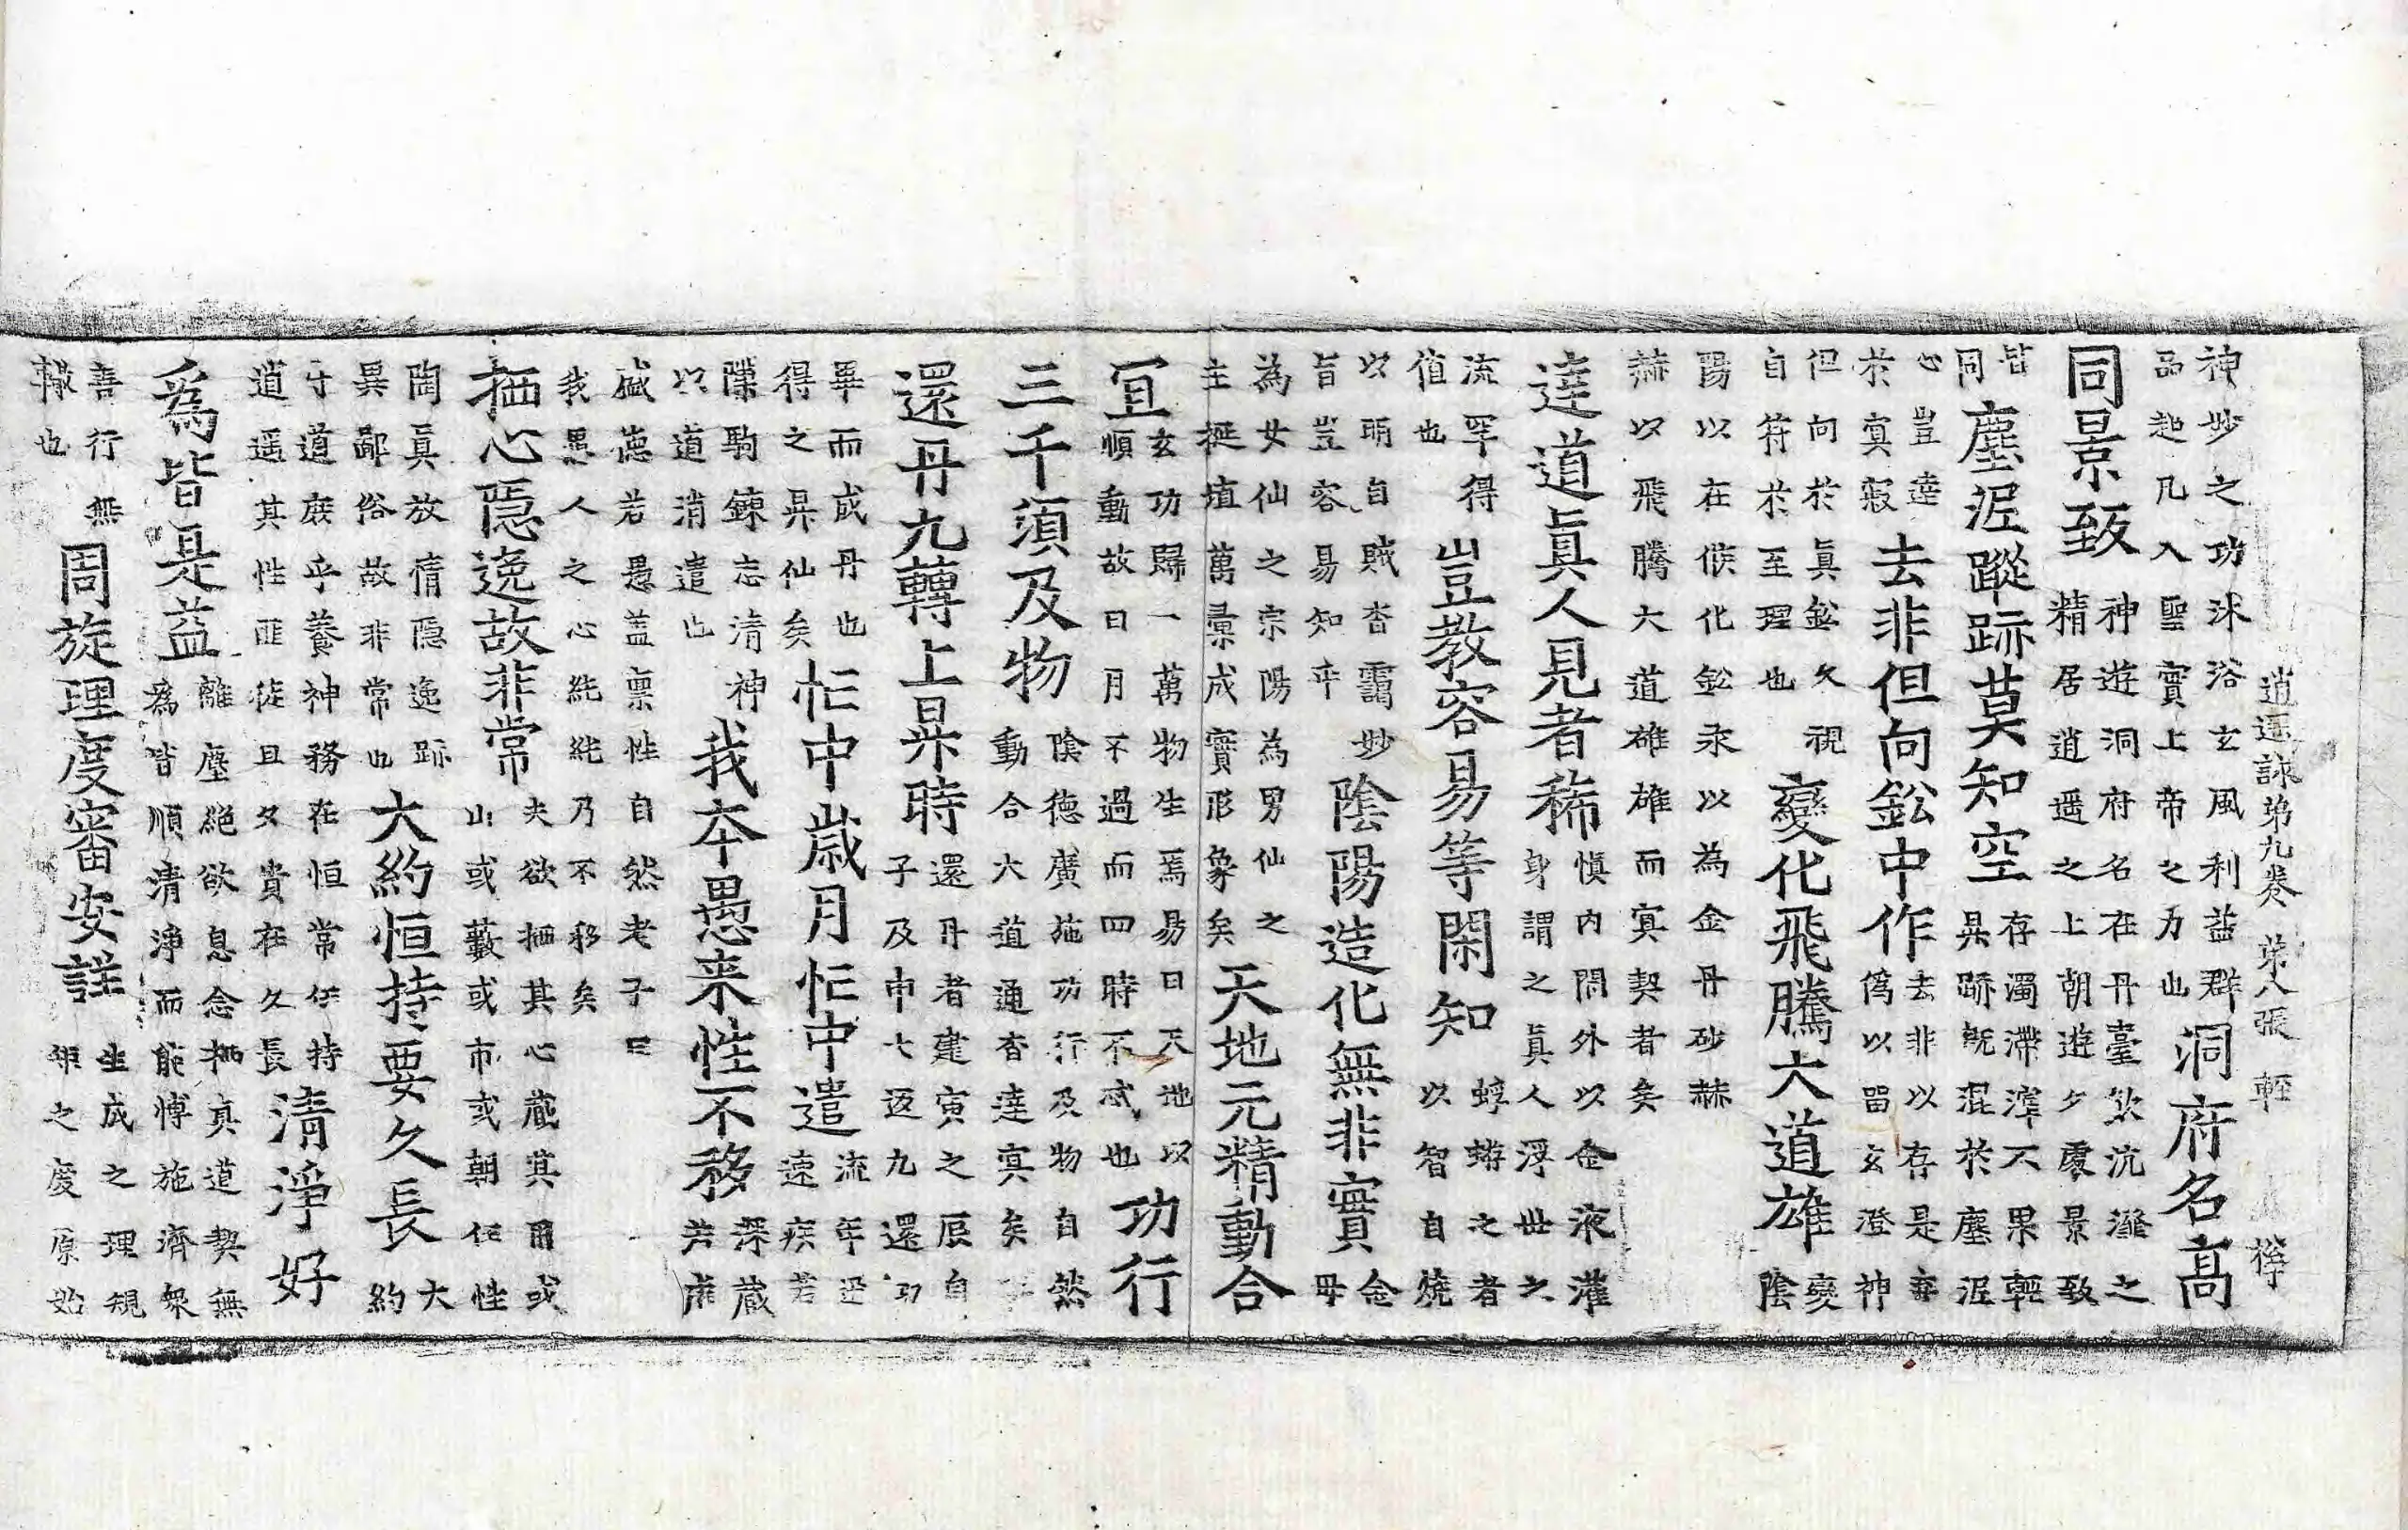 逍遥詠第九卷 第八張 輕
神妙之功沐浴玄風利益群
品起凡入聖實上帝之力也
洞府名高
同景致
神遊洞府名在丹臺飲沆瀣之
精居逍遥之上朝遊夕處景致
皆
同
塵泥蹤跡莫知空
存濁滯滓不果輕
昇跡旣混於塵泥
心豈達
於寘寂
去非但向鈆中作
去非以存是弃
僞以留玄澄神
但向於眞鈆久視
自符於至理也
變化飛騰大道雄
變
陰
陽以在候化鈆汞以為金丹砂赫
赫以飛騰大道雄雄而寘契者矣
達道眞人見者稀
慎内閉外以金液灌
身謂之眞人浮世之
流罕得
值也
豈教容易等閑知
蜉蝣之者
以智自燒
以明自賊杳靄妙
旨豈容易知乎
陰陽造化無非實
金
母
為女仙之宗陽為男仙之
主挻埴萬彙成實形象矣
天地元精動合
宜
玄功歸一萬物生焉易曰天地以
順動故日月不過而四時不忒也
功行
三千須及物
陰德廣施功行及物自然
動合大道通杳達寘矣
還丹九轉上昇時
還丹者建寅之辰自
子及申七返九還功
畢而成丹也
得之昇仙矣
忙中歲月忙中遣
流年迅
速疾若
隙駒鍊志清神
以道消遣也
我本愚来性不移
深藏
若虛
盛德若愚盖禀性自然老子曰
我愚人之心純純乃不移矣
栖心隱逸故非常
夫欲栖其心藏其用或
山或藪或市或朝任性
陶眞放情隱逸跡
異鄙俗故非常也
大約恒持要久長
大
約
守道庶乎養神務在恒常任持
逍遥其性匪徒旦夕貴在久長
清淨好
為皆是益
離塵絕欲息念栖真道契無
為皆順清淨而能博施濟衆
善行無
轍也
周旋理度審安詳
生成之理規
矩之度原始